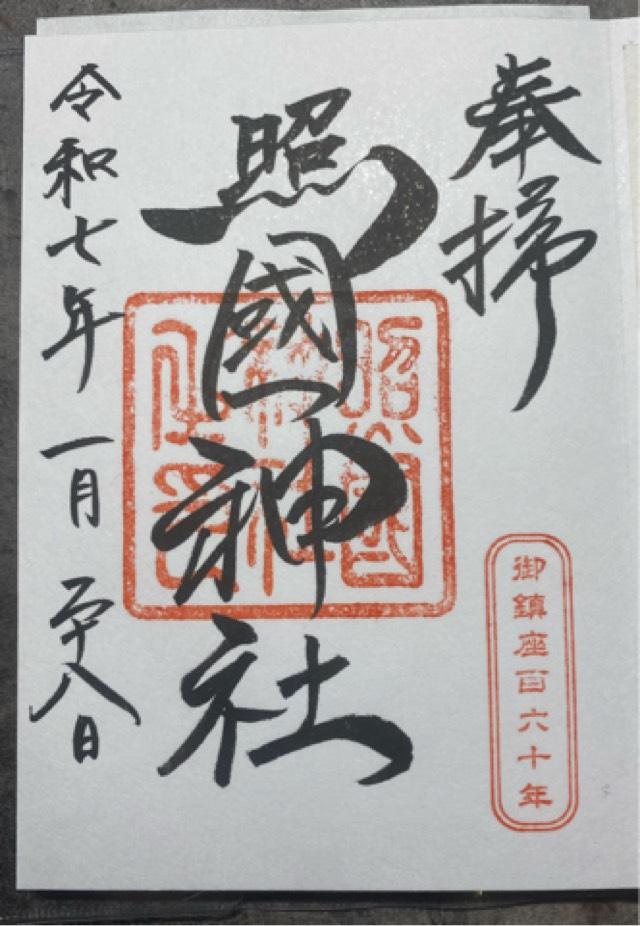 奉拝
照國神社
照國神社之印
御鎮座百六十年
令和七年一月二十八日